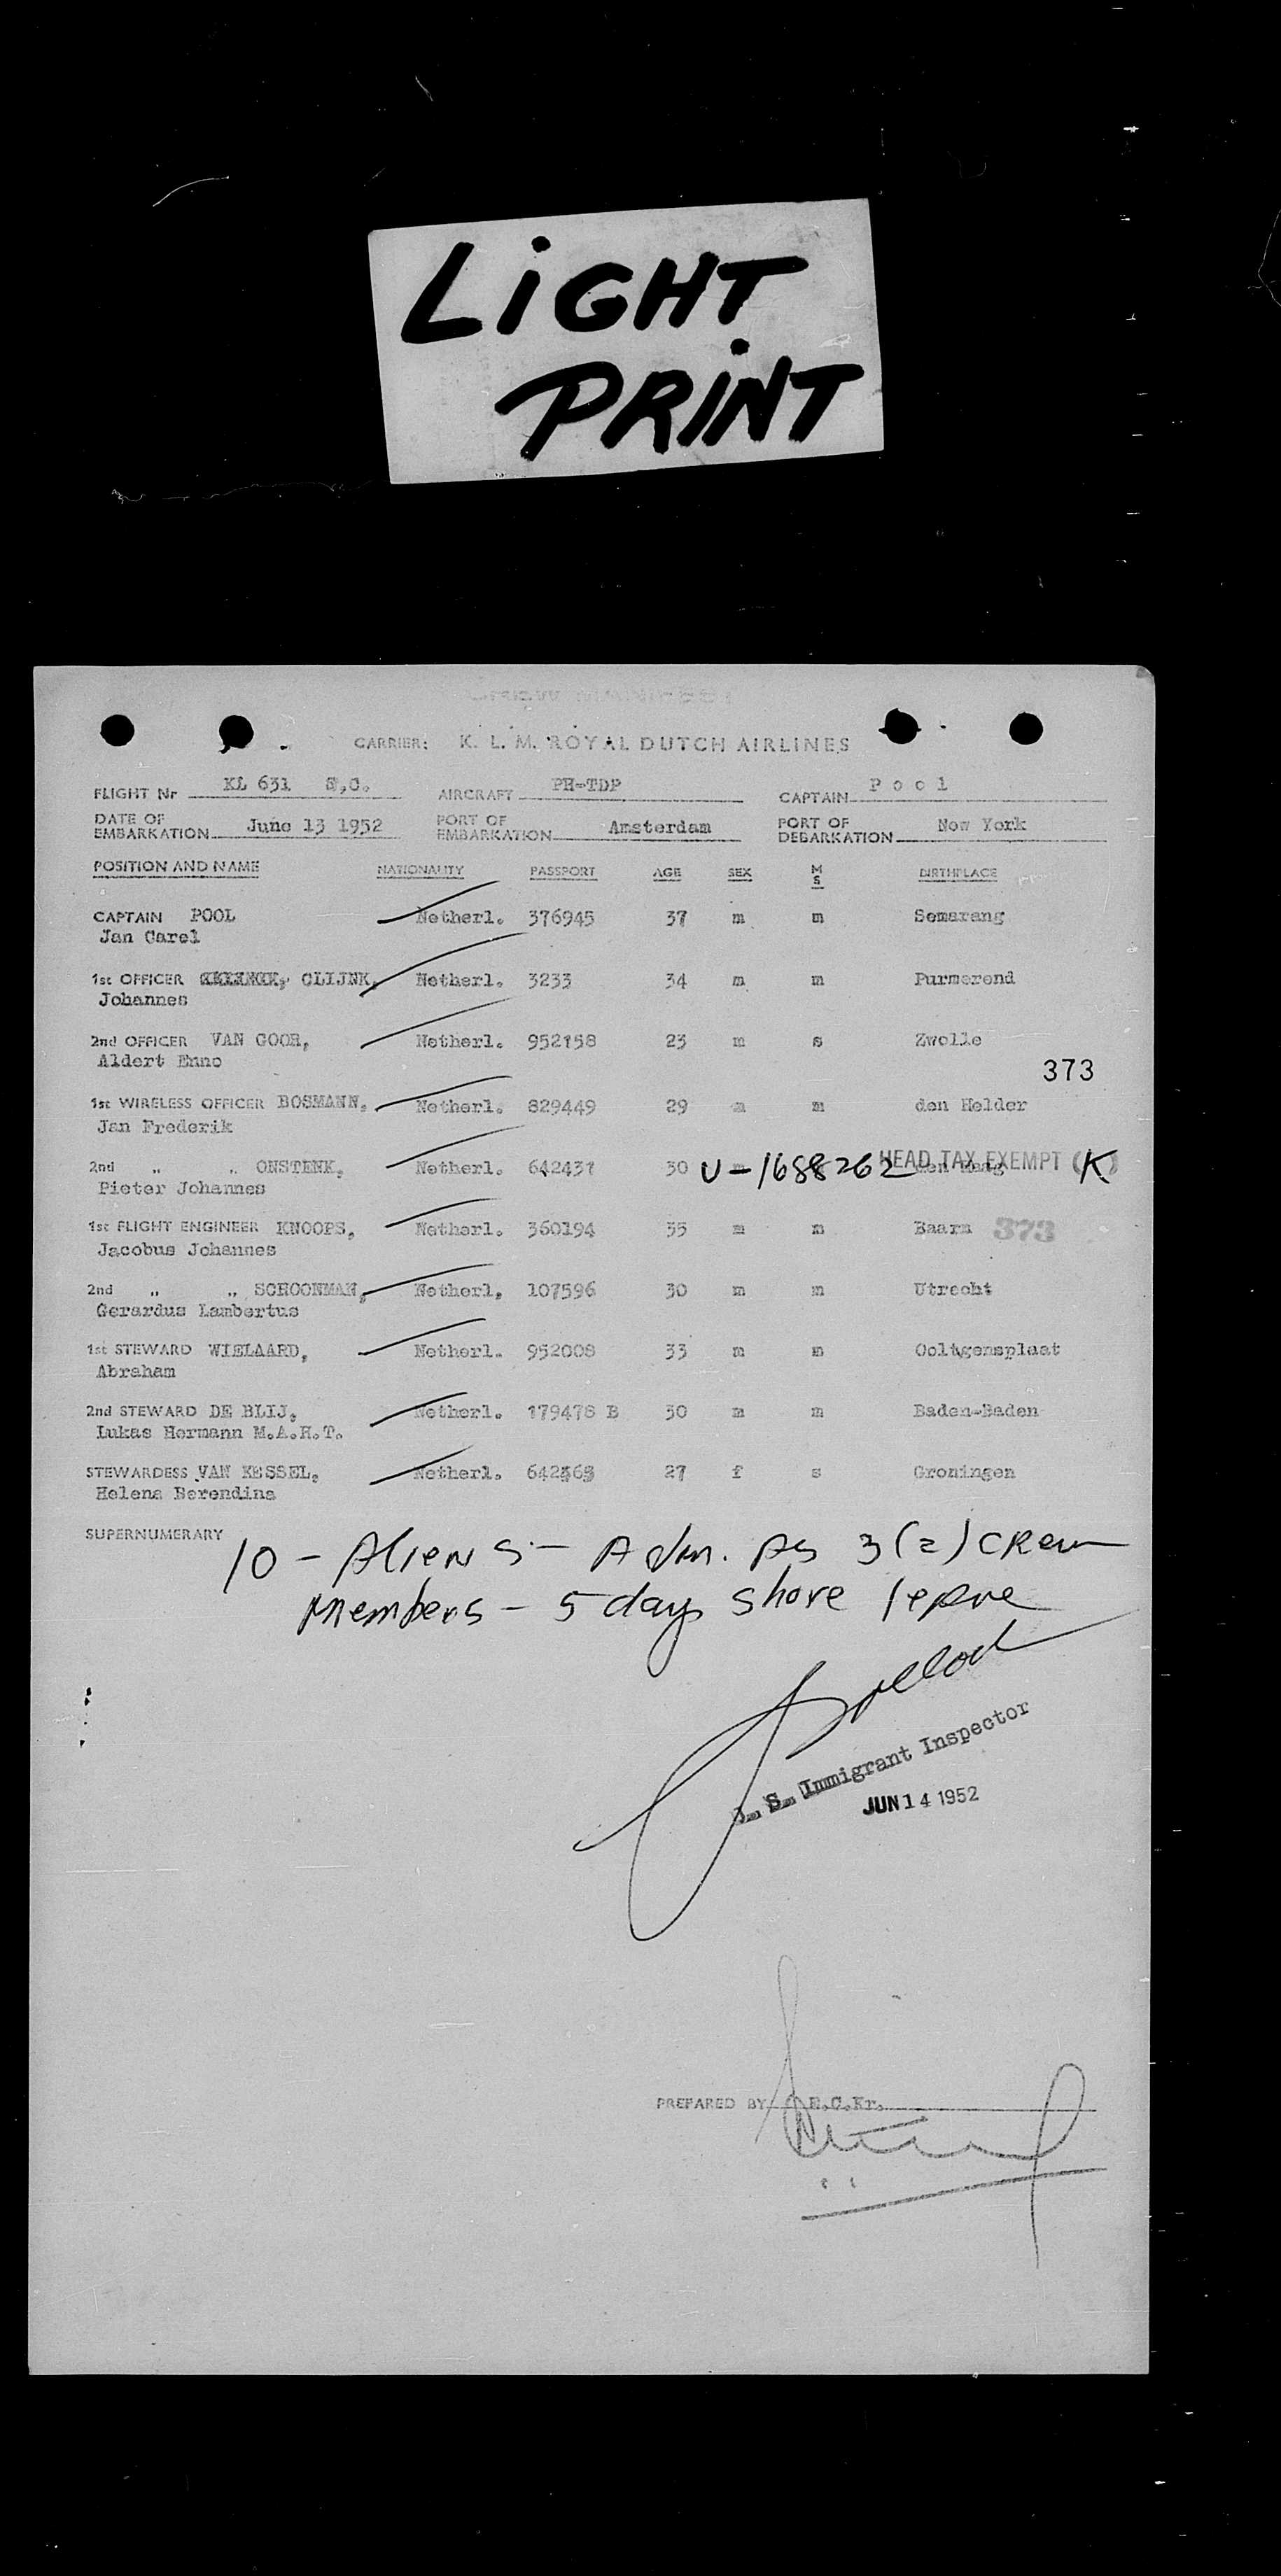 LiGHT
PRiNT
CREW MANIFEST
CARRIER: K. L. M. ROYAL DUTCH AIRLINES
FLIGHT Nr KL 631 S.C. AIRCRAFT PH-TDP CAPTAIN P o o l
DATE OF EMBARKATION June 13 1952 PORT OF EMBARKATION Amsterdam PORT OF DEBARKATION New York
POSITION AND NAME NATIONALITY PASSPORT AGE SEX M S BIRTHPLACE
CAPTAIN POOL Netherl. 376945 37 m m Semarang
Jan Carel
1st OFFICER CLIJNK, Netherl. 3233 34 m m Purmerend
Johannes
2nd OFFICER VAN GOOR, Netherl. 952158 23 m s Zwolle
Aldert Enno
373
1st WIRELESS OFFICER BOSMANN, Netherl. 829449 29 m m den Helder
Jan Frederik
2nd " " ONSTENK, Netherl. 642431 30 U-1688262 den Haag HEAD TAX EXEMPT (K)
Pieter Johannes
1st FLIGHT ENGINEER KNOOPS, Netherl. 360194 35 m m Baarn 373
Jacobus Johannes
2nd " " SCHOONMAN, Netherl. 107596 30 m m Utrecht
Gerardus Lambertus
1st STEWARD WIELAARD, Netherl. 952008 33 m m Ooltgensplaat
Abraham
2nd STEWARD DE BLIJ, Netherl. 179478 B 30 m m Baden-Baden
Lukas Hermann M.A.H.T.
STEWARDESS VAN KESSEL, Netherl. 642363 27 f s Groningen
Helena Berendina
SUPERNUMERARY
10 - Aliens - Adm. As 3(2) Crew
Members - 5 days shore leave
U. S. Immigrant Inspector
JUN 14 1952
PREPARED BY H.C.Kr.